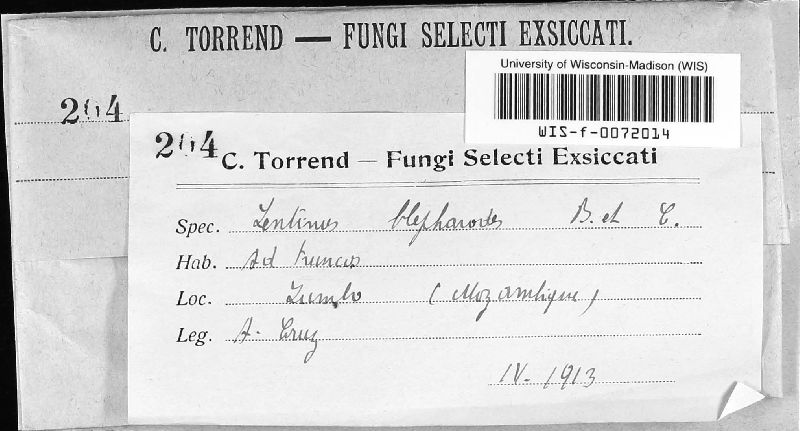 C. TORREND — FUNGI SELECTI EXSICCATI.
University of Wisconsin-Madison (WIS)
WIS-f-0072014
204
204 C. Torrend — Fungi Selecti Exsiccati
Spec. Lentinus blepharodes B. et C.
Hab. Ad truncos
Loc. Zumbo (Mozambique)
Leg. A. Cruz
IV-1913